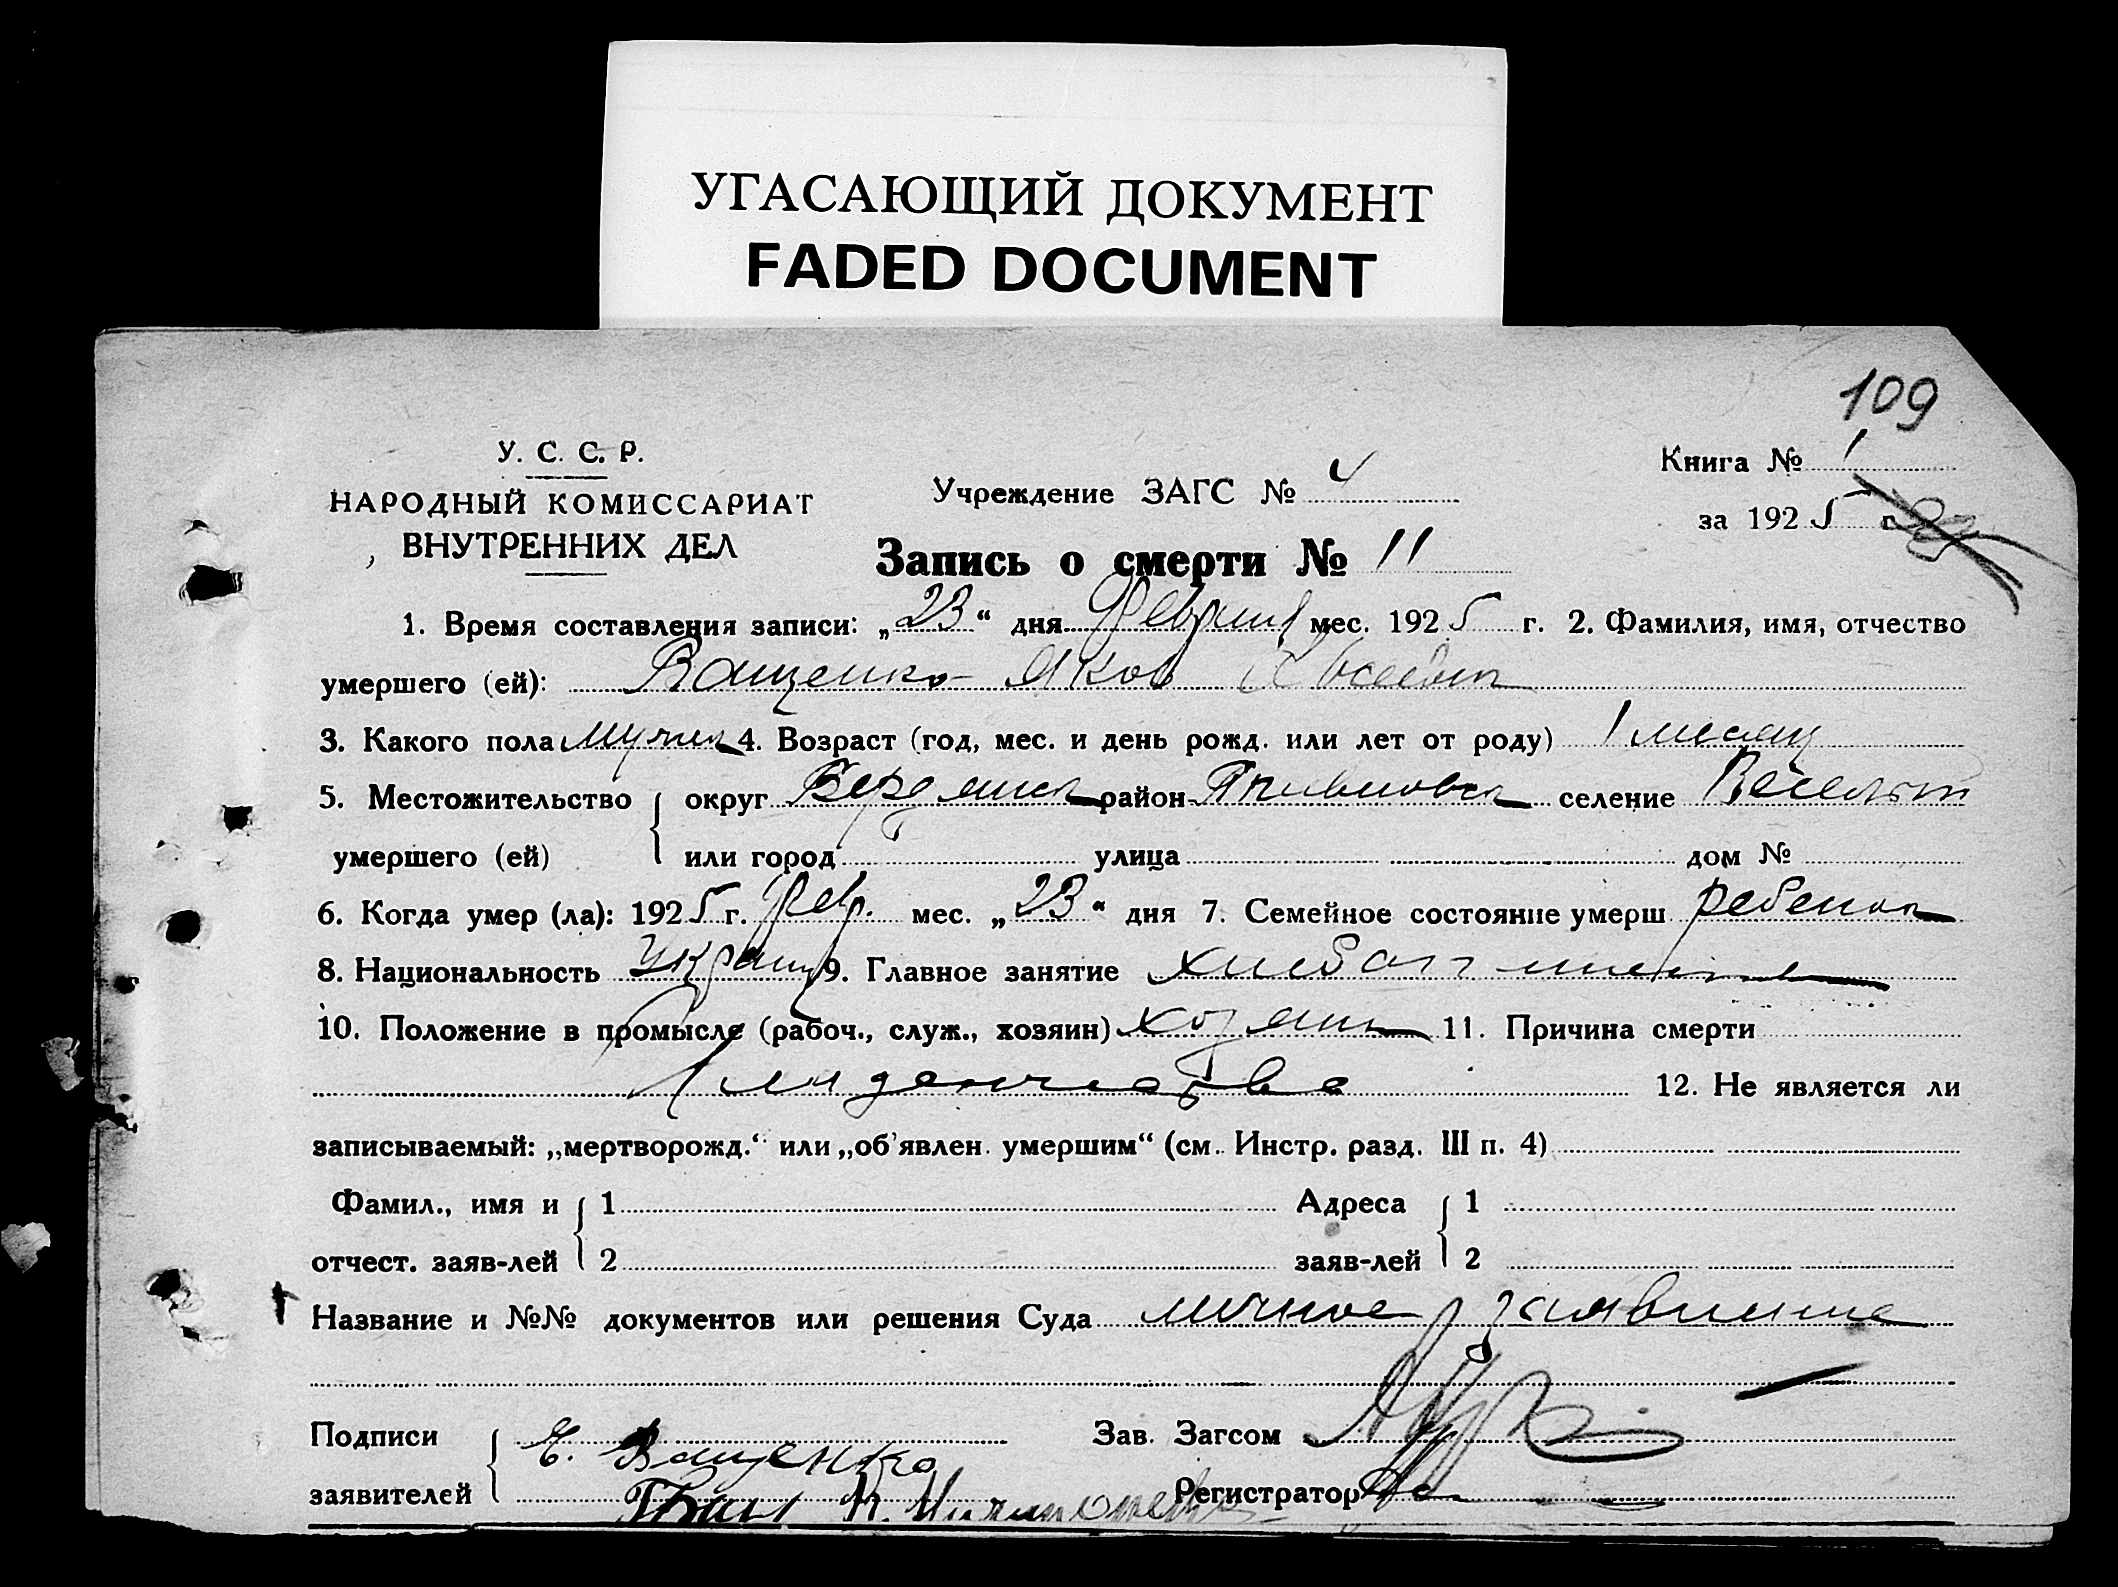 УГАСАЮЩИЙ ДОКУМЕНТ
FADED DOCUMENT
109
У. С. С. Р.
НАРОДНЫЙ КОМИССАРИАТ
ВНУТРЕННИХ ДЕЛ
Учреждение ЗАГС № 4
Книга № 1
за 1925 г.
Запись о смерти № 11
1. Время составления записи: „23“ дня Февраля мес. 1925 г. 2. Фамилия, имя, отчество
умершего (ей): Ващенко Яков
3. Какого пола мужск 4. Возраст (год, мес. и день рожд. или лет от роду) 1 месяц
5. Местожительство округ Бердянск район селение Веселое
умершего (ей) или город улица дом №
6. Когда умер (ла): 1925 г. Февр. мес. „23“ дня 7. Семейное состояние умерш ребенок
8. Национальность Украин 9. Главное занятие хлебопашество
10. Положение в промысле (рабоч., служ., хозяин) хозяин 11. Причина смерти
Младенчество 12. Не является ли
записываемый: „мертворожд.“ или „об’явлен. умершим“ (см. Инстр. разд. III п. 4)
Фамил., имя и 1 Адреса 1
отчест. заяв-лей 2 заяв-лей 2
Название и №№ документов или решения Суда личное заявление
Подписи Е. Ващенко Зав. Загсом
заявителей Регистратор